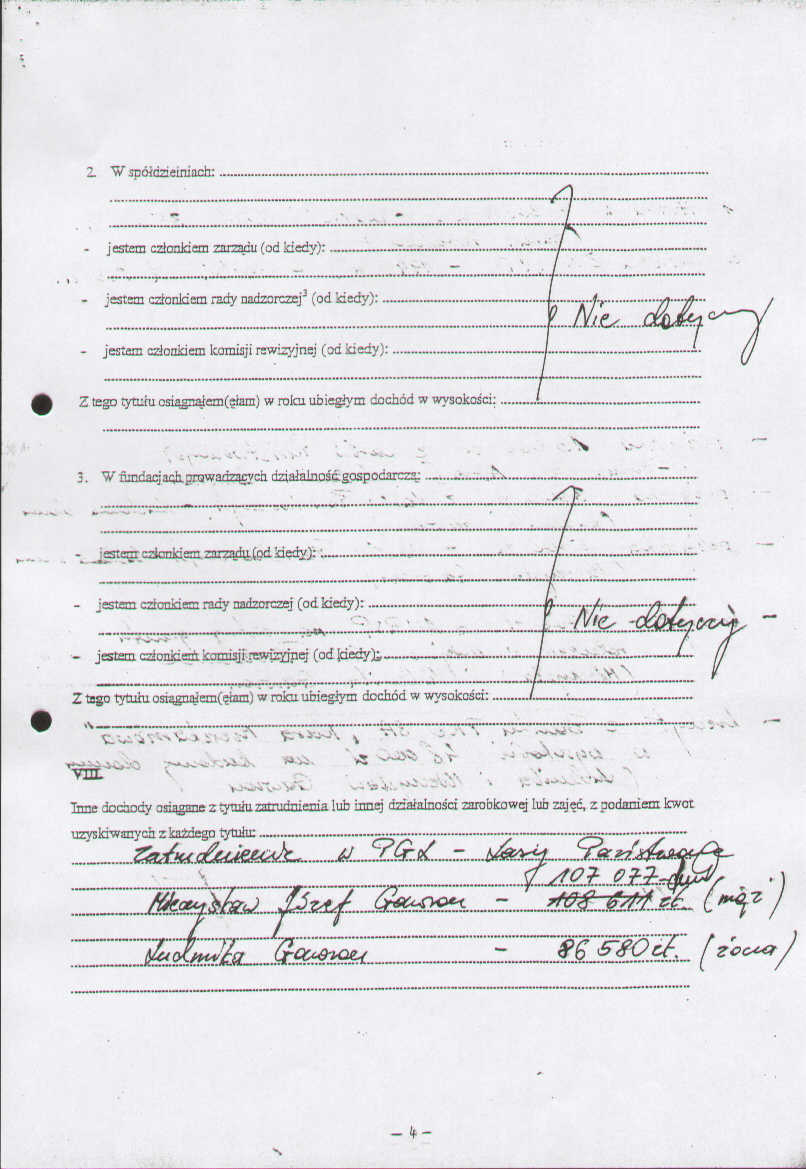 2. W spółdzielniach: ........................................
........................................
........................................
- jestem członkiem zarządu (od kiedy): ........................................
........................................
- jestem członkiem rady nadzorczej³ (od kiedy): ........................................
........................................ Nie dotyczy
- jestem członkiem komisji rewizyjnej (od kiedy): ........................................
........................................
Z tego tytułu osiągnąłem(ęłam) w roku ubiegłym dochód w wysokości: ........................................
........................................
3. W fundacjach prowadzących działalność gospodarczą: ........................................
........................................
........................................
- jestem członkiem zarządu (od kiedy): ........................................
........................................
- jestem członkiem rady nadzorczej (od kiedy): ........................................
........................................ Nie dotyczy -
- jestem członkiem komisji rewizyjnej (od kiedy): ........................................
........................................
Z tego tytułu osiągnąłem(ęłam) w roku ubiegłym dochód w wysokości: ........................................
........................................
VIII.
Inne dochody osiągane z tytułu zatrudnienia lub innej działalności zarobkowej lub zajęć, z podaniem kwot
uzyskiwanych z każdego tytułu: ........................................
Zatrudnienie w PGL - Lasy Państwowe
107 077
Mieczysław Józef Gawron - 108 611 zł. (mąż)
Ludmiła Gawron - 86 580 zł. (żona)
- 4 -